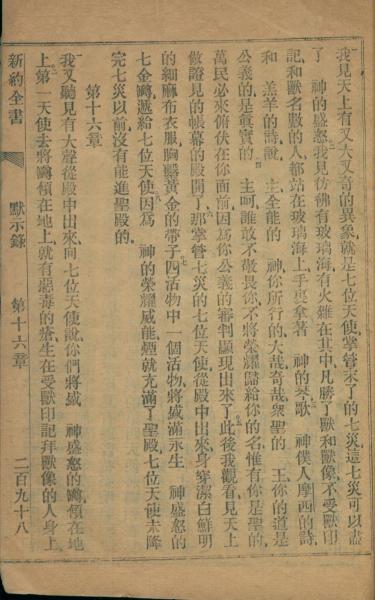 我見天上有又大又奇的異象就是七位天使掌管末了的七災這七災可以盡
了　神的盛怒我見仿佛有玻璃海有火雜在其中凡勝了獸和獸像不受獸印
記和獸名數的人都站在玻璃海上手裏拿著　神的琴歌　神僕人摩西的詩
和　羔羊的詩說　主全能的　神你所行的大哉奇哉眾聖的　王你的道是
公義的是真實的　主呵誰敢不敬畏你不將榮耀歸給你的名惟有你是聖的
萬民必來俯伏在你面前因爲你公義的審判顯現出來了此後我觀看見天上
做證見的帳幕的殿開了那掌管七災的七位天使從殿中出來身穿潔白鮮明
的細麻布衣服胸繫黃金的帶子四活物中一個活物將盛滿永生　神盛怒的
七金罇遞給七位天使因爲　神的榮耀威能煙就充滿了聖殿七位天使未降
完七災以前沒有能進聖殿的
第十六章
我又聽見有大聲從殿中出來向七位天使說你們將盛　神盛怒的罇傾在地
上第一天使去將罇傾在地上就有惡毒的瘡生在受獸印記拜獸像的人身上
新約全書　默示錄　第十六章　二百九十八